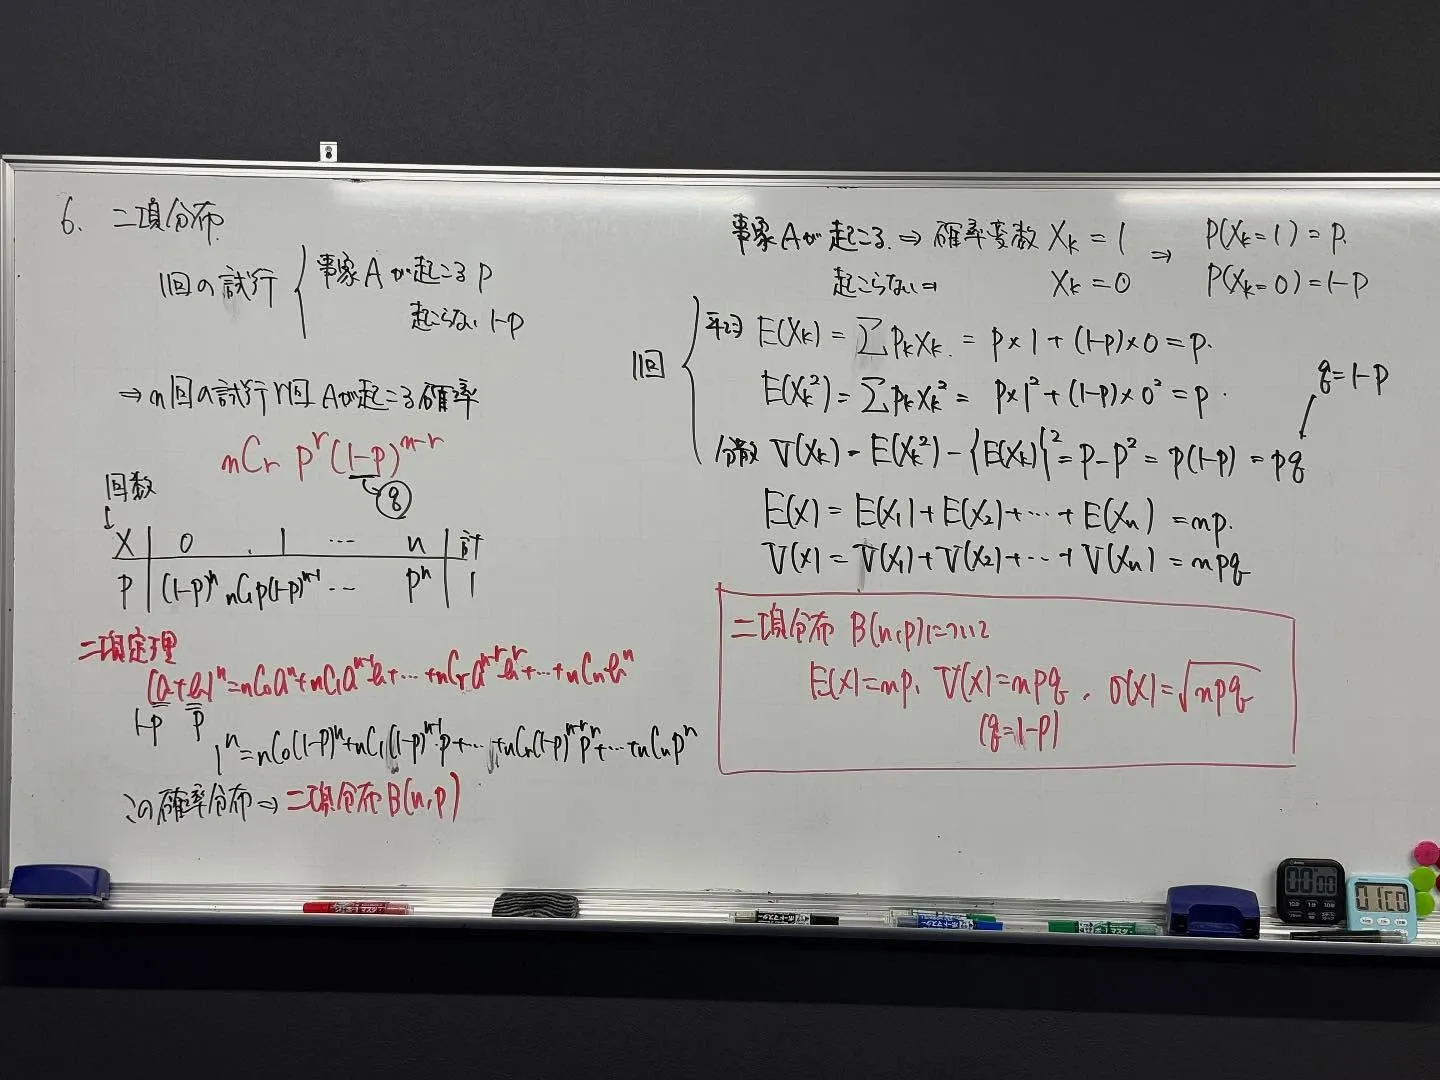 6. 二項分布
1回の試行 { 事象Aが起こる p
起こらない 1-p
⇒ n回の試行r回Aが起こる確率
nCr p^r (1-p)^{n-r}
q
回数
↓
X | 0 1 … n | 計
P | (1-p)^n nC1p(1-p)^{n-1} … p^n | 1
二項定理
(a+b)^n = nC0a^n + nC1a^{n-1}b + … + nCra^{n-r}b^r + … + nCnb^n
1-p p
1^n = nC0(1-p)^n + nC1(1-p)^{n-1}・p + … + nCr(1-p)^{n-r}p^r + … + nCnp^n
この確率分布 ⇒ 二項分布 B(n,p)
事象Aが起こる ⇒ 確率変数 Xk = 1 ⇒ P(Xk=1) = p.
起こらない ⇒ Xk = 0 P(Xk=0) = 1-p
1回
平均 E(Xk) = Σ pkXk = p×1 + (1-p)×0 = p.
E(Xk²) = Σ pkXk² = p×1² + (1-p)×0² = p.
q = 1-p
分散 V(Xk) = E(Xk²) - {E(Xk)}² = p - p² = p(1-p) = pq
E(X) = E(X1) + E(X2) + … + E(Xn) = np.
V(X) = V(X1) + V(X2) + … + V(Xn) = npq
二項分布 B(n,p)について
E(X) = np, V(X) = npq, σ(X) = √npq
(q = 1-p)
00 00